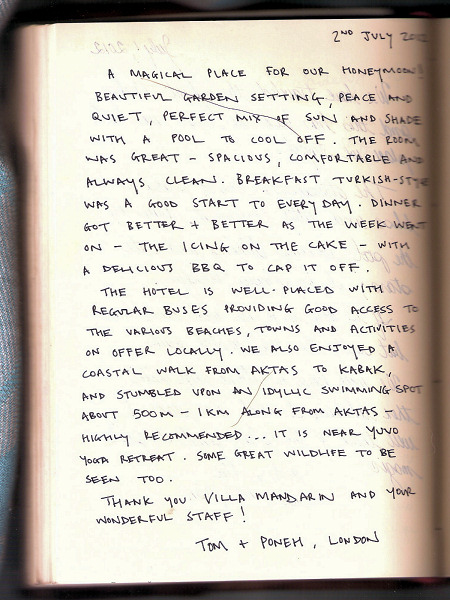 2ND JULY 2012
A MAGICAL PLACE FOR OUR HONEYMOON!
BEAUTIFUL GARDEN SETTING, PEACE AND
QUIET, PERFECT MIX OF SUN AND SHADE
WITH A POOL TO COOL OFF. THE ROOM
WAS GREAT - SPACIOUS, COMFORTABLE AND
ALWAYS CLEAN. BREAKFAST TURKISH-STYLE
WAS A GOOD START TO EVERY DAY. DINNER
GOT BETTER + BETTER AS THE WEEK WENT
ON - THE ICING ON THE CAKE - WITH
A DELICIOUS BBQ TO CAP IT OFF.
THE HOTEL IS WELL-PLACED WITH
REGULAR BUSES PROVIDING GOOD ACCESS TO
THE VARIOUS BEACHES, TOWNS AND ACTIVITIES
ON OFFER LOCALLY. WE ALSO ENJOYED A
COASTAL WALK FROM AKTAS TO KABAK,
AND STUMBLED UPON AN IDYLLIC SWIMMING SPOT
ABOUT 500M - 1KM ALONG FROM AKTAS -
HIGHLY RECOMMENDED... IT IS NEAR YUVO
YOGA RETREAT. SOME GREAT WILDLIFE TO BE
SEEN TOO.
THANK YOU VILLA MANDARIN AND YOUR
WONDERFUL STAFF!
TOM + PONEH, LONDON